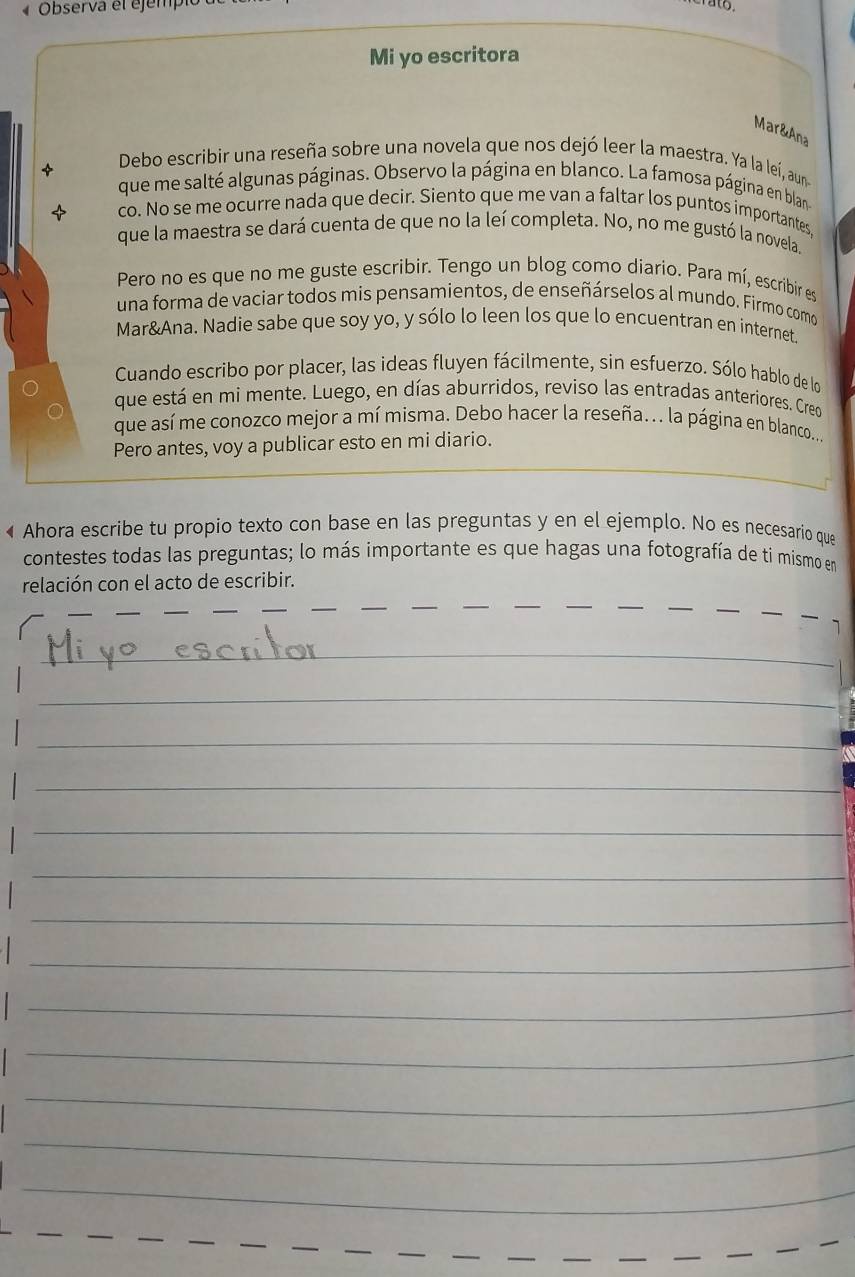 Observa el
Mi yo escritora
Mar&Ana
Debo escribir una reseña sobre una novela que nos dejó leer la maestra. Ya la leí, aun-
que me salté algunas páginas. Observo la página en blanco. La famosa página en blan-
co. No se me ocurre nada que decir. Siento que me van a faltar los puntos importantes,
que la maestra se dará cuenta de que no la leí completa. No, no me gustó la novela.
Pero no es que no me guste escribir. Tengo un blog como diario. Para mí, escribir es
una forma de vaciar todos mis pensamientos, de enseñárselos al mundo. Firmo como
Mar&Ana. Nadie sabe que soy yo, y sólo lo leen los que lo encuentran en internet.
Cuando escribo por placer, las ideas fluyen fácilmente, sin esfuerzo. Sólo hablo de lo
que está en mi mente. Luego, en días aburridos, reviso las entradas anteriores. Creo
que así me conozco mejor a mí misma. Debo hacer la reseña... la página en blanco...
Pero antes, voy a publicar esto en mi diario.
Ahora escribe tu propio texto con base en las preguntas y en el ejemplo. No es necesario que
contestes todas las preguntas; lo más importante es que hagas una fotografía de ti mismo en
relación con el acto de escribir.
Mi yo escritor